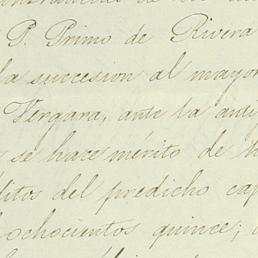 P. Primo de Rivera
la succesion al mayor
Vergara, ante la anti
se hace mérito de l
ditos del predicho cap
ochocientos quince;